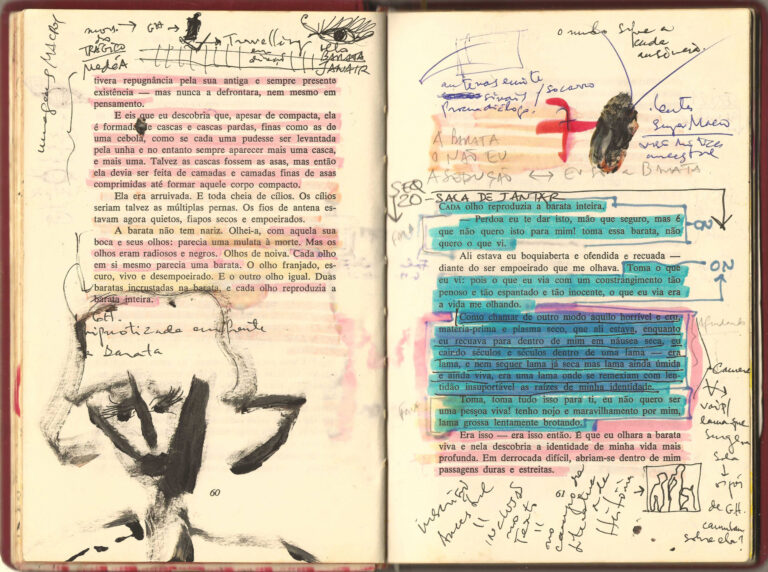 mov.
do
TRÁGICO
MedeA
→ GH →
Travelling
em
direção
olho
BARATA
JANAIR
imagens / MACRO
tivera repugnância pela sua antiga e sempre presente
existência — mas nunca a defrontara, nem mesmo em
pensamento.
E eis que eu descobria que, apesar de compacta, ela
é formada de cascas e cascas pardas, finas como as de
uma cebola, como se cada uma pudesse ser levantada
pela unha e no entanto sempre aparecer mais uma casca,
e mais uma. Talvez as cascas fossem as asas, mas então
ela devia ser feita de camadas e camadas finas de asas
comprimidas até formar aquele corpo compacto.
Ela era arruivada. E toda cheia de cílios. Os cílios
seriam talvez as múltiplas pernas. Os fios de antena es-
tavam agora quietos, fiapos secos e empoeirados.
A barata não tem nariz. Olhei-a, com aquela sua
boca e seus olhos: parecia uma mulata à morte. Mas os
olhos eram radiosos e negros. Olhos de noiva. Cada olho
em si mesmo parecia uma barata. O olho franjado, es-
curo, vivo e desempoeirado. E o outro olho igual. Duas
baratas incrustadas na barata, e cada olho reproduzia a
barata inteira.
GH.
hipnotizada em frente
a barata
60
o mundo
cada
ausência.
antenas
sinais / socorro
lento
Super Macro
ancestral
A BARATA
O NÃO EU
A SEDUÇÃO ↔ EU A BARATA
SEQ
20 - SALA DE JANTAR
CADA olho reproduzia a barata inteira.
Perdoa eu te dar isto, mão que seguro, mas é
que não quero isto para mim! toma essa barata, não
quero o que vi.
Ali estava eu boquiaberta e ofendida e recuada —
diante do ser empoeirado que me olhava. Toma o que
eu vi: pois o que eu via com um constrangimento tão
penoso e tão espantado e tão inocente, o que eu via era
a vida me olhando.
Como chamar de outro modo aquilo horrível e cru,
matéria-prima e plasma seco, que ali estava, enquanto
eu recuava para dentro de mim em náusea seca, eu
caindo séculos e séculos dentro de uma lama — era
lama, e nem sequer lama já seca mas lama ainda úmida
e ainda viva, era uma lama onde se remexiam com len-
tidão insuportável as raízes de minha identidade.
Toma, toma tudo isso para ti, eu não quero ser
uma pessoa viva! tenho nojo e maravilhamento por mim,
lama grossa lentamente brotando.
Era isso — era isso então. É que eu olhara a barata
viva e nela descobria a identidade de minha vida mais
profunda. Em derrocada difícil, abriam-se dentro de mim
passagens duras e estreitas.
20
lama que
surgem
de GH.
caminham
sobre ela?
61
Ancestral
no
Texto
História